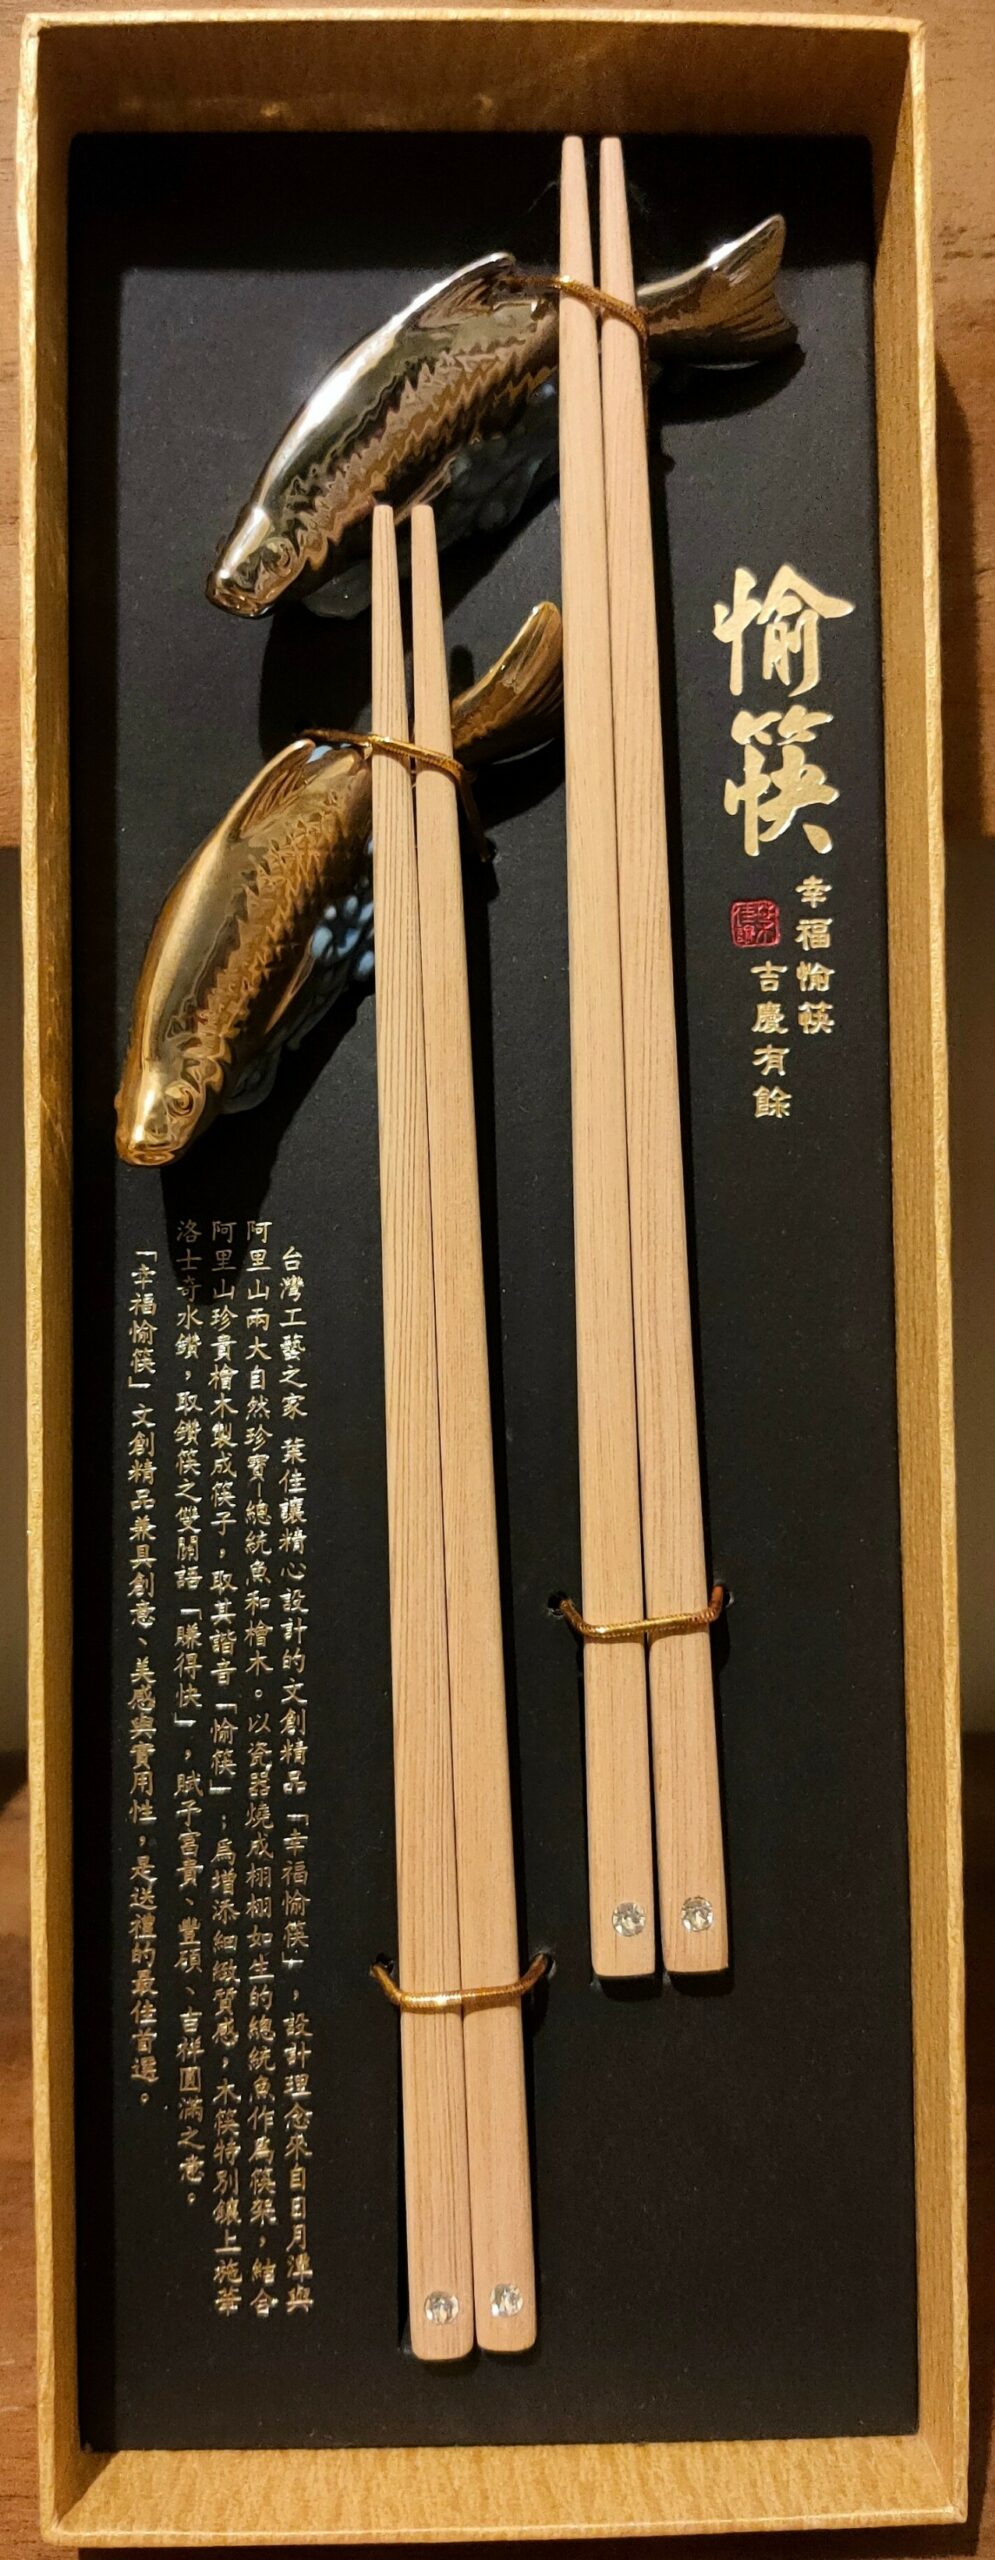 愉筷
幸福愉筷
吉慶有餘
台灣工藝之家 葉佳讓精心設計的文創精品「幸福愉筷」，設計理念來自日月潭與
阿里山兩大自然珍寶-總統魚和檜木。以瓷器燒成栩栩如生的總統魚作為筷架，結合
阿里山珍貴檜木製成筷子，取其諧音「愉筷」；為增添細緻質感，木筷特別鑲上施華
洛士奇水鑽，取鑽筷之雙關語「賺得快」，賦予富貴、豐碩、吉祥圓滿之意。
「幸福愉筷」文創精品兼具創意、美感與實用性，是送禮的最佳首選。